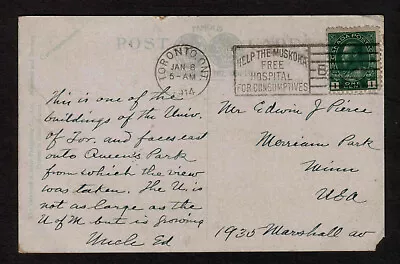 POST
TORONTO, ONT.
JAN 8
5-AM
1914
HELP THE MUSKOKA
FREE
HOSPITAL
FOR CONSUMPTIVES
This is one of the
buildings of the Univ.
of Tor. and faces east
onto Queen's Park
from which the view
was taken. The U. is
not as large as the
U of M but is growing
Uncle Ed
Mr Edwin J Pierce
Merriam Park
Minn
USA
1935 Marshall av